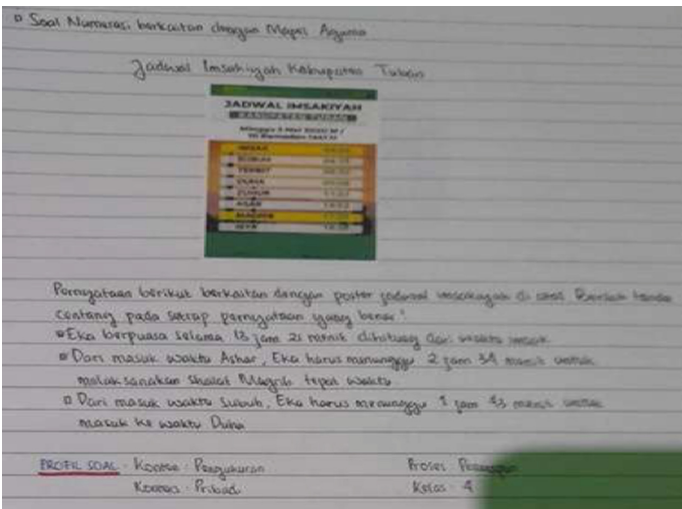 Soal Numerasi berkaitan dengan Mapel Agama
Jadwal Imsakiyah Kabupaten Tuban
JADWAL IMSAKIYAH
KABUPATEN TUBAN
Minggu 3 Mei 2020 M /
10 Ramadan 1441 H
IMSAK
SUBUH
TERBIT
DUHA
ZUHUR
ASAR
MAGRIB
ISYA
Pernyataan berikut berkaitan dengan poster jadwal imsakiyah di atas. Berilah tanda
centang pada setiap pernyataan yang benar!
Eka berpuasa selama 13 jam 21 menit dihitung dari waktu imsak
Dari masuk waktu Ashar, Eka harus menunggu 2 jam 34 menit untuk
melaksanakan Shalat Magrib tepat waktu
Dari masuk waktu Subuh, Eka harus menunggu 1 jam 43 menit untuk
masuk ke waktu Duha
PROFIL SOAL : Konten : Pengukuran Proses :
Konteks : Pribadi Kelas : 4